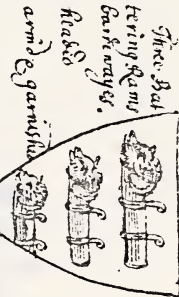 Three Bat
tering Rams
barrwayes.
headed
armde, garnished